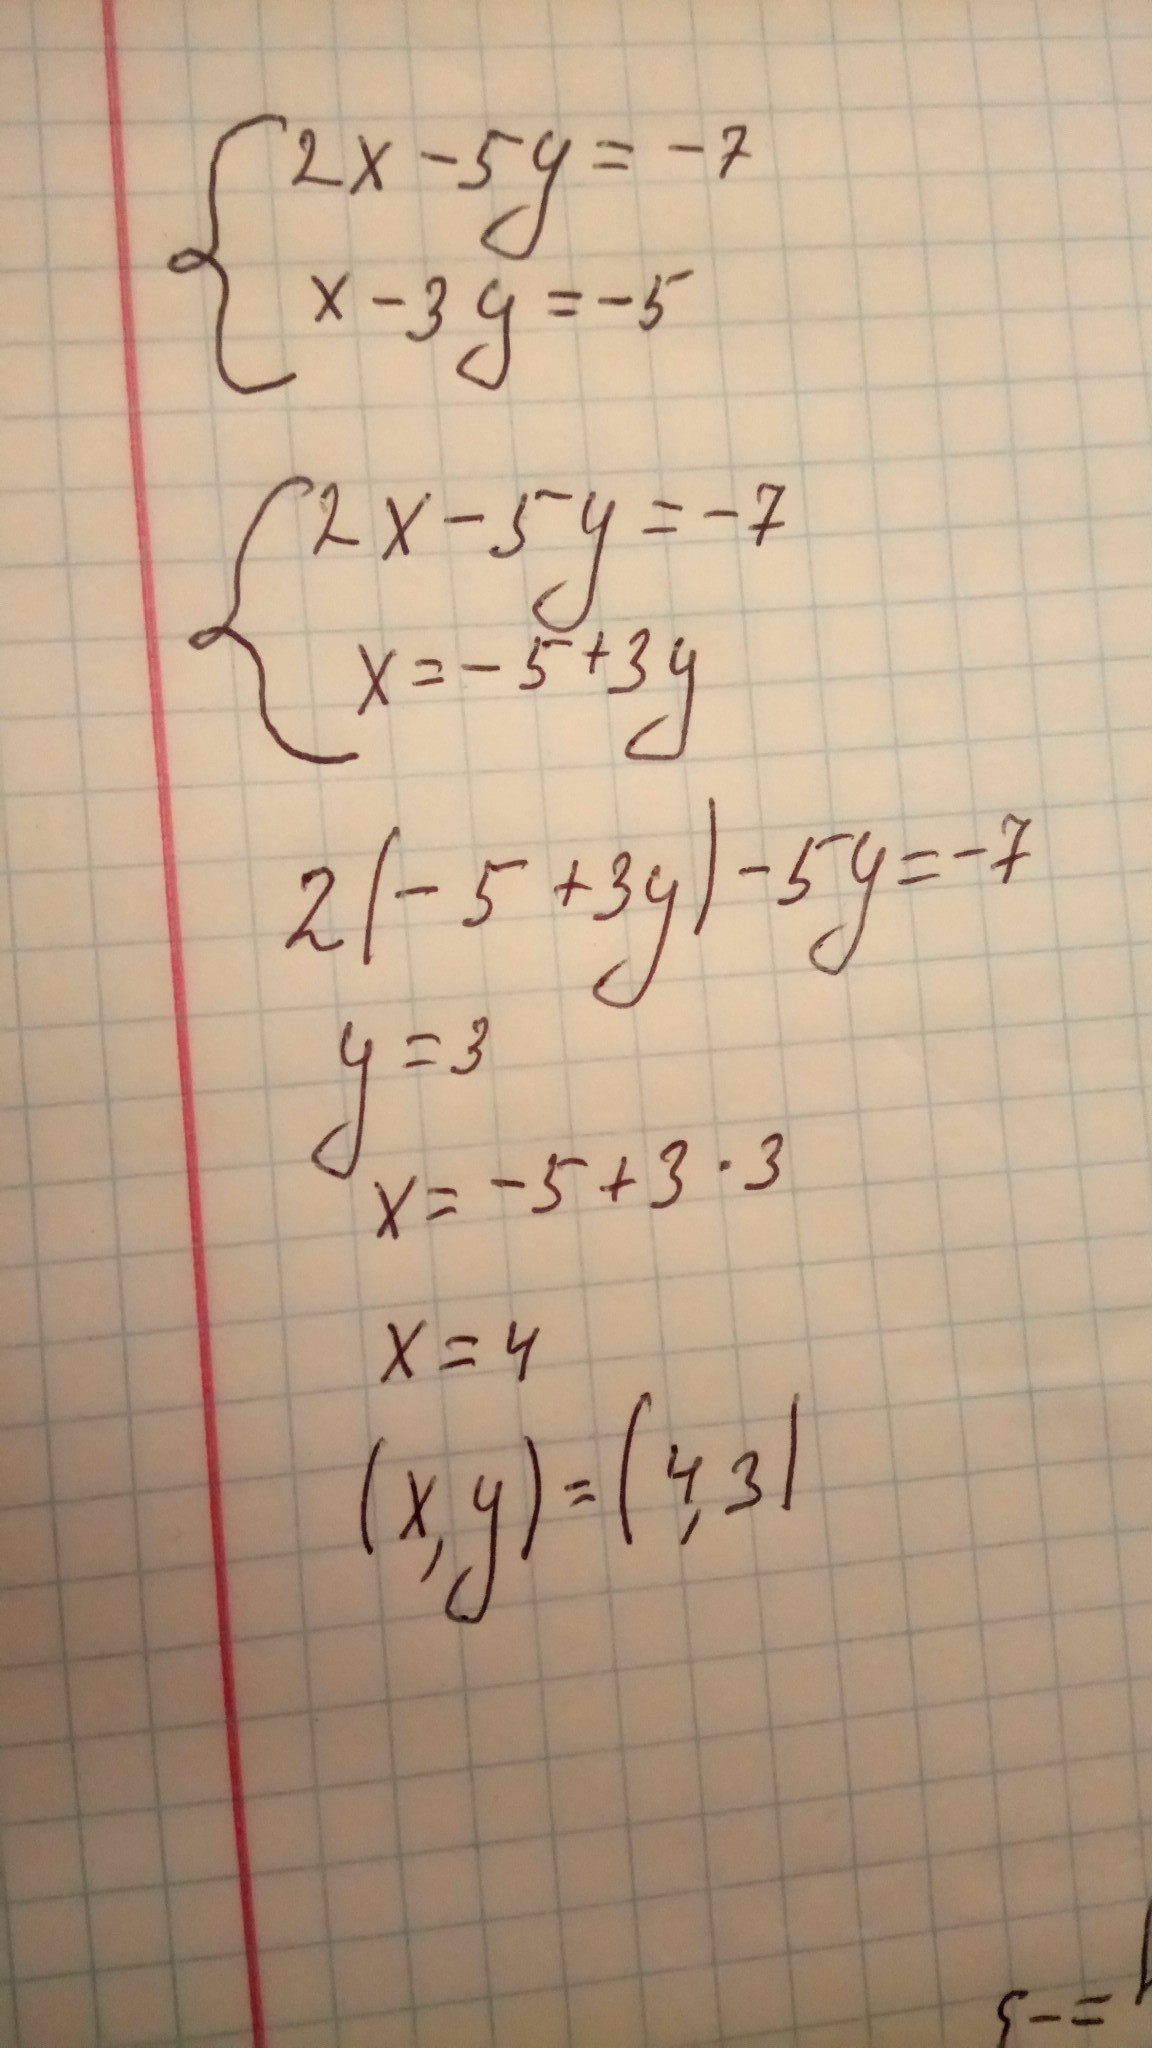 2x - 5y = -7
x - 3y = -5
2x - 5y = -7
x = -5 + 3y
2(-5 + 3y) - 5y = -7
y = 3
x = -5 + 3 · 3
x = 4
(x, y) = (4, 3)